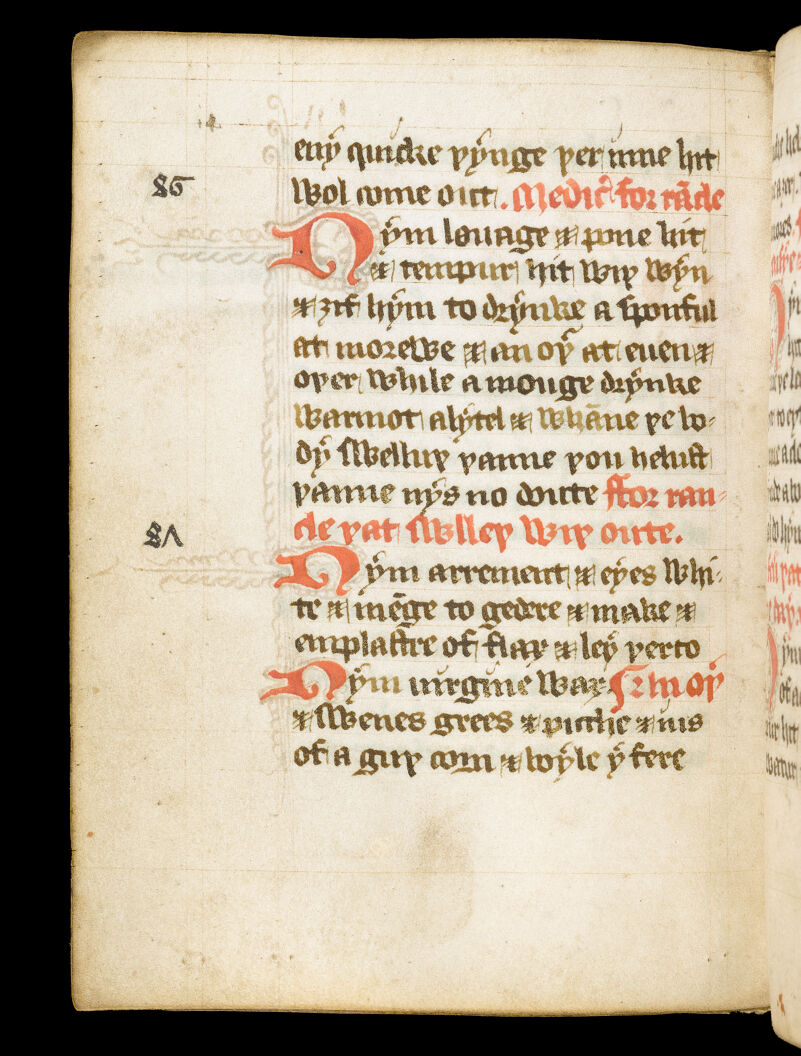 eny quicke þynge þer inne hit
86
wol come out. Medic̄ for rācle
Nym louage & pone hit
& tempur hit wiþ wyn
& ȝif hym to drynke a sponful
at morewe & an oþer at euen &
oþer while a monge drynke
warmot a lytel & whāne þe bo-
dy swelluþ þanne þou helust
þanne nys no doute ffor ran-
87
cle þat swlleþ wiþ oute.
Nym arrement & eyes whi-
te & mēge to gedere & make &
emplastre of flax & ley þerto
Nym uirgine wax
& swenes grees & picche & ius
of a guþ corn & boyle y fere